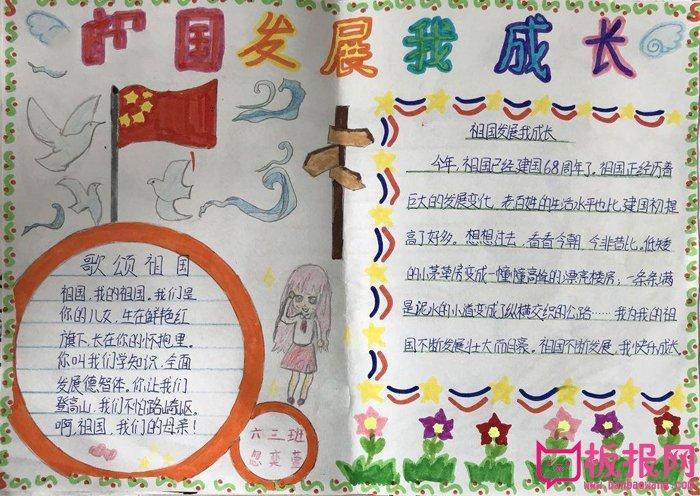 祖国发展我成长
歌颂祖国
祖国,我的祖国。我们是
你的儿女,生在鲜艳红
旗下,长在你的怀抱里。
你叫我们学知识,全面
发展德智体。你让我们
登高山,我们不怕路崎岖。
啊,祖国,我们的母亲!
祖国发展我成长
今年,祖国已经建国68周年了。祖国正经历着
巨大的发展变化,老百姓的生活水平也比建国初提
高了好多。想想过去,看看今朝,今非昔比。低矮
的小茅草房变成一幢幢高耸的小漂亮楼房;一条条满
是泥水的小道变成了纵横交织的公路……我为我的祖
国不断发展壮大而自豪。祖国不断发展,我快乐成长
六三班
板报网
www.banbaowang.com